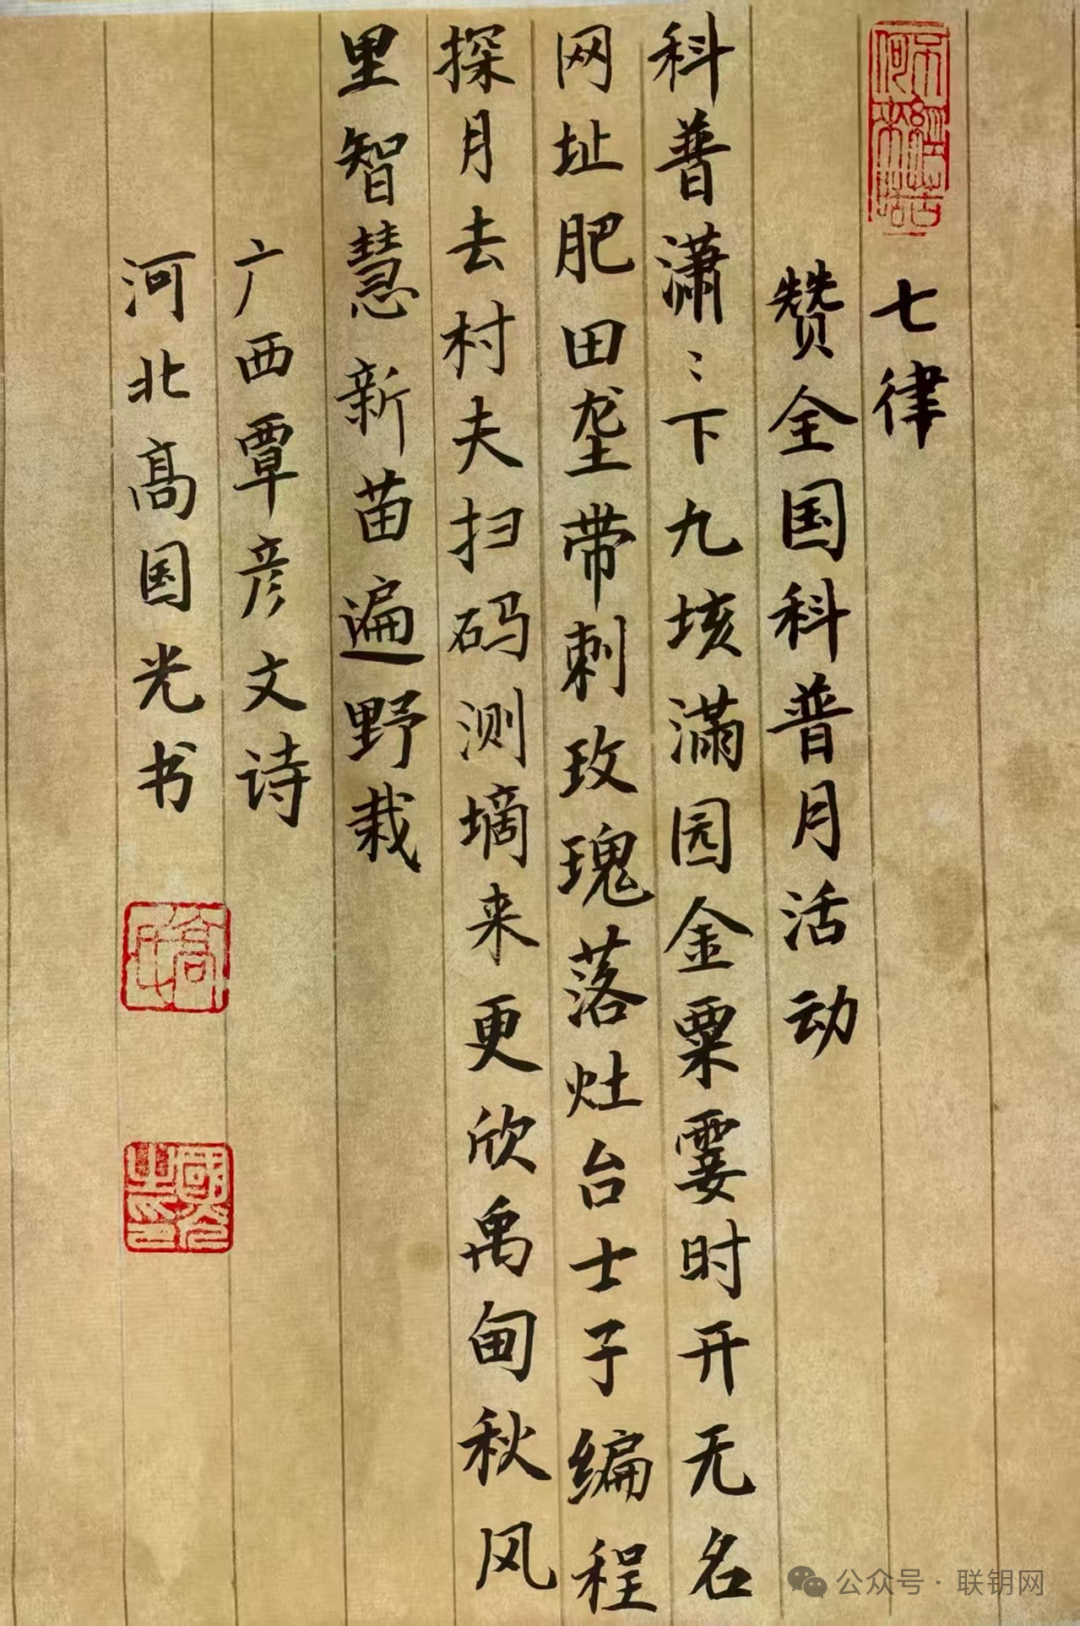 七律
赞全国科普月活动
科普潇〻下九垓满园金粟霎时开无名
网址肥田垄带刺玫瑰落灶台士子编程
探月去村夫扫码测墒来更欣禹甸秋风
里智慧新苗遍野栽
广西覃彦文诗
河北髙国光书
高氏
國光之印
公众号 · 联钥网